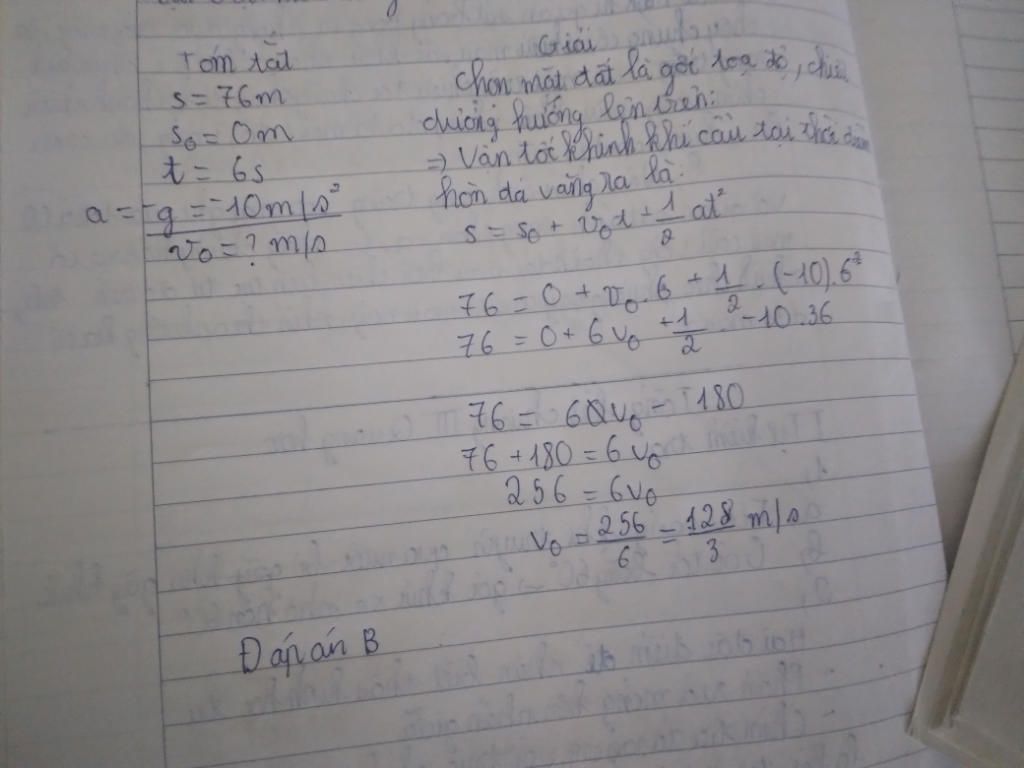 Tóm tắt
s = 76m
s₀ = 0m
t = 6s
a = -g = -10m/s²
v₀ = ? m/s
Giải
Chọn mặt đất là gốc toạ độ, chiều
dương hướng lên trên:
=> Vận tốc khinh khí cầu tại thời điểm
hòn đá văng ra là:
s = s₀ + v₀t + 1/2 at²
76 = 0 + v₀.6 + 1/2 . (-10).6²
76 = 0 + 6v₀ + 1/2 . -10.36
76 = 6v₀ - 180
76 + 180 = 6v₀
256 = 6v₀
v₀ = 256/6 = 128/3 m/s
Đáp án B